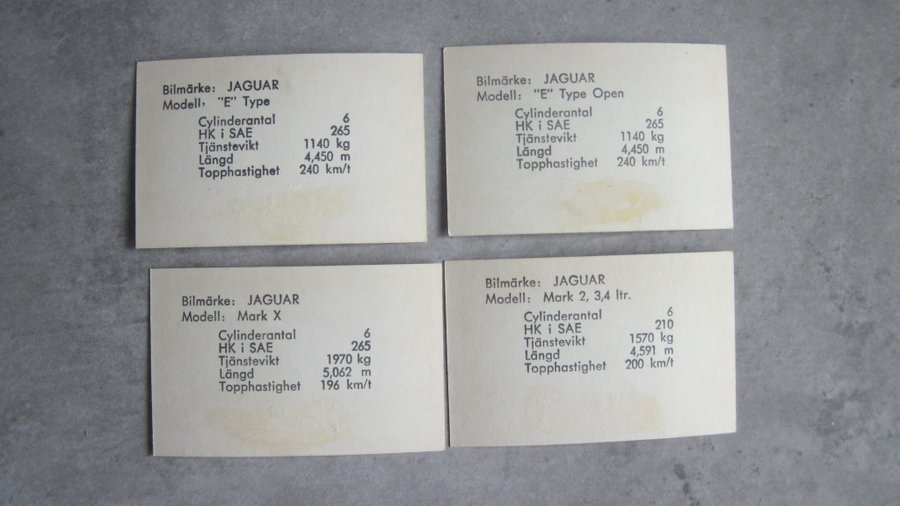 Bilmärke: JAGUAR
Modell: "E" Type
Cylinderantal 6
HK i SAE 265
Tjänstevikt 1140 kg
Längd 4,450 m
Topphastighet 240 km/t
Bilmärke: JAGUAR
Modell: "E" Type Open
Cylinderantal 6
HK i SAE 265
Tjänstevikt 1140 kg
Längd 4,450 m
Topphastighet 240 km/t
Bilmärke: JAGUAR
Modell: Mark X
Cylinderantal 6
HK i SAE 265
Tjänstevikt 1970 kg
Längd 5,062 m
Topphastighet 196 km/t
Bilmärke: JAGUAR
Modell: Mark 2, 3,4 ltr.
Cylinderantal 6
HK i SAE 210
Tjänstevikt 1570 kg
Längd 4,591 m
Topphastighet 200 km/t